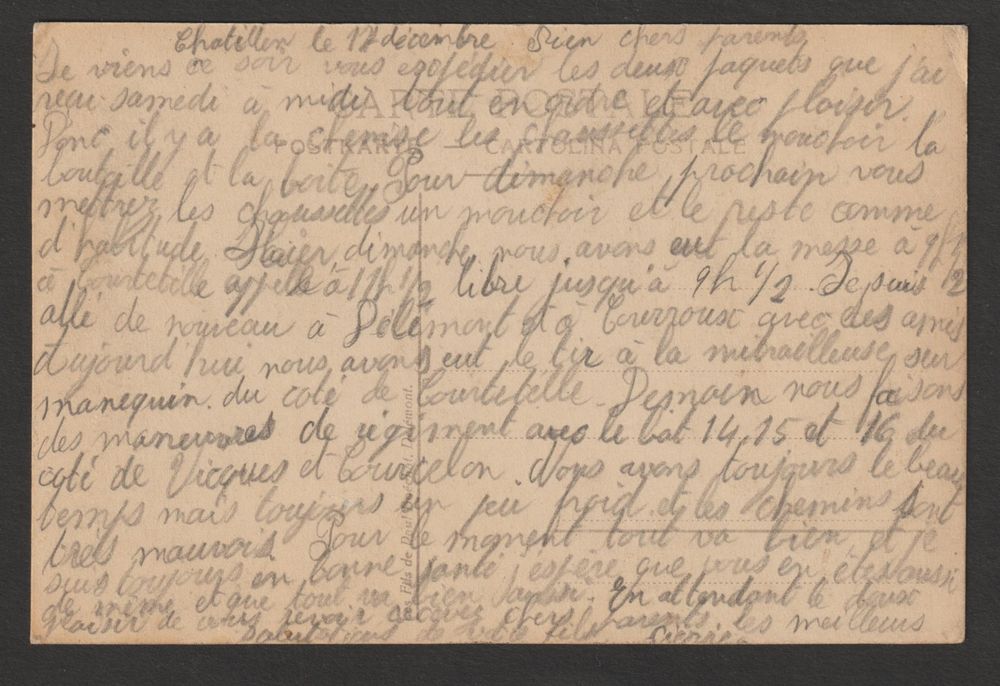 Chatillon le 17 décembre Bien chers parents
Je viens ce soir vous les deux paquets que j'ai
reçu samedi à midi tout en ordre et avec plaisir.
CARTE POSTALE
Donc il y a la chemise les chaussettes le mouchoir la
POSTKARTE — CARTOLINA POSTALE
bouteille et la boite. Pour dimanche prochain vous
mettrez les un mouchoir et le reste comme
d'habitude. dimanche, nous avons eut la messe à 9h 1/2
à Courtetelle appelle à 11h 1/2 libre jusqu'à 9h 1/2. Je suis
allé de nouveau à Delémont et à Courroux avec des amis
aujourd'hui nous avons eut le tir à la mitrailleuse sur
manequin. du coté de Courtetelle. Demain nous faisons
des de regiment avec le bat 14, 15 et 16 du
coté de Vicques et Courcelon. Nous avons toujours le beau
temps mais toujours un peu froid et les chemins sont
très mauvais. Pour le moment tout va bien et je
suis toujours en bonne santé j'espère que vous en aussi
de même et que tout va bien aussi. En attendant le doux
plaisir de vous revoir chers parents, les meilleurs
de votre fils
Fils de Paul Delémont.